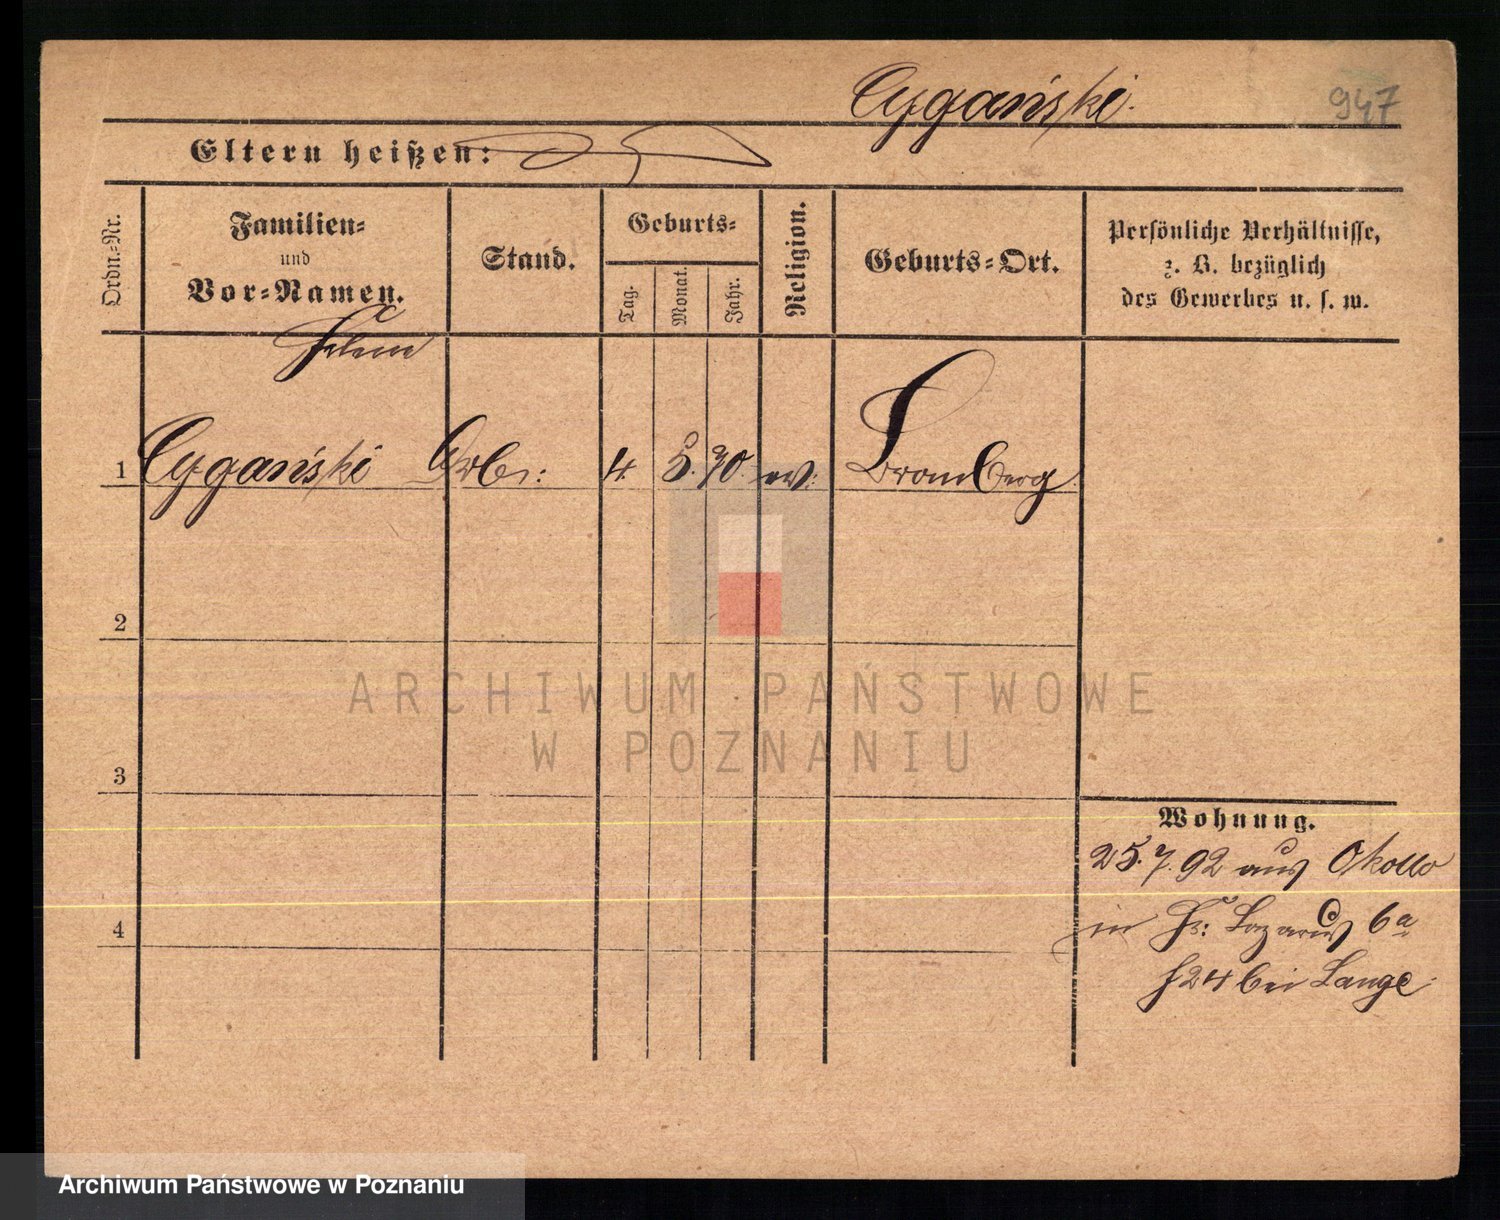 Cygański. 947
Eltern heißen:
Ordn.-Nr.
Familien-
und
Vor-Namen.
Stand.
Geburts-
Tag.
Monat.
Jahr.
Religion.
Geburts-Ort.
Persönliche Verhältnisse,
z. B. bezüglich
des Gewerbes u. s. w.
1 Cygański Arb: 4. 5. 70. ev: Bromberg.
2
3
4
Wohnung.
25.7.92 aus Okollo
in St. Lazarus 6a
24 bei Lange.
ARCHIWUM PAŃSTWOWE
W POZNANIU
Archiwum Państwowe w Poznaniu